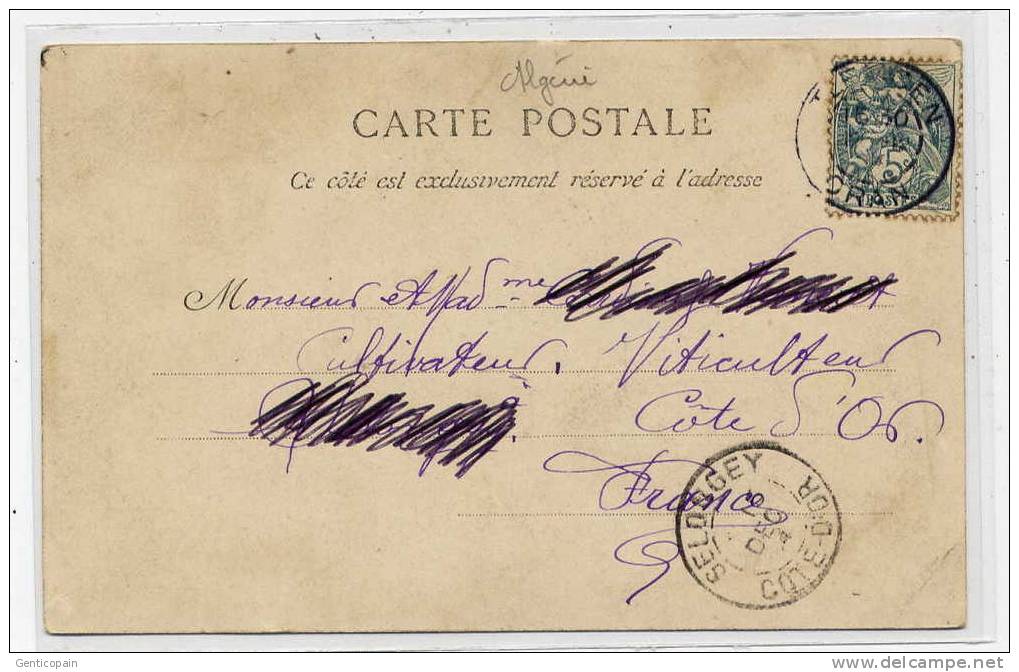 Algérie
CARTE POSTALE
Ce côté est exclusivement réservé à l'adresse
TLEMCEN
ORAN
5
Monsieur et Madme
Cultivateur, Viticulteur
à
Côte d'Or.
France
SELONGEY
CÔTE-D'OR
DEC
Genticopain
www.delcampe.net